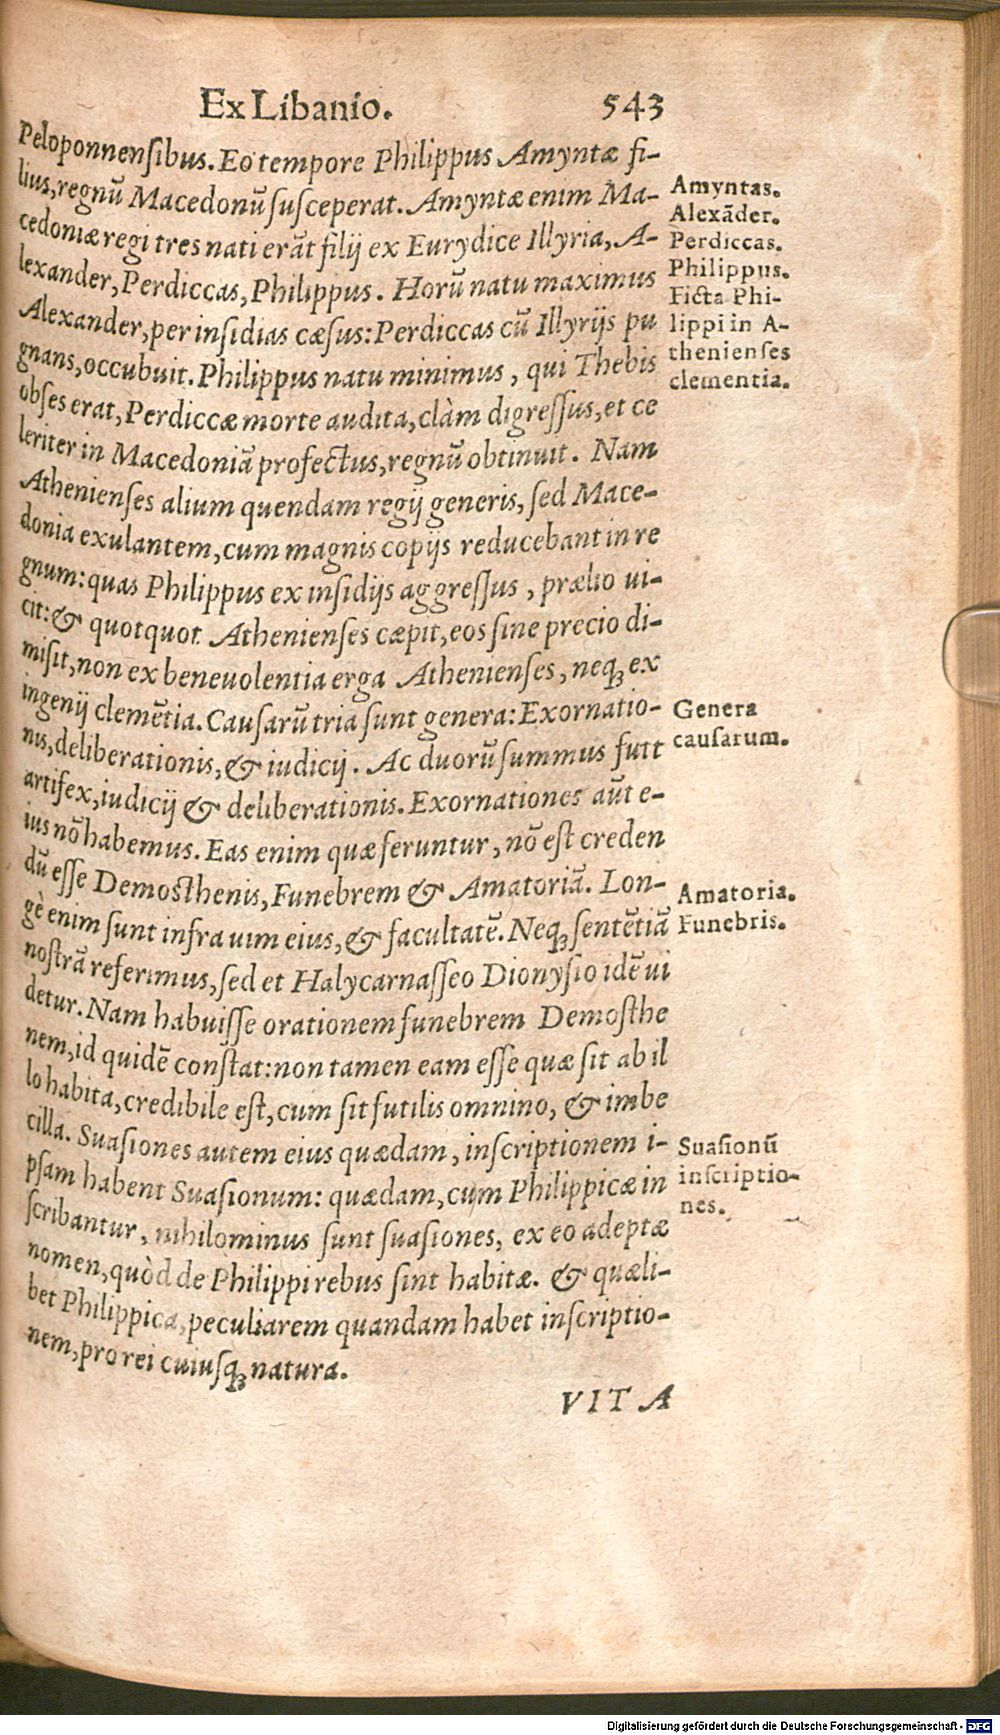 Ex Libanio. 543
Peloponnensibus. Eo tempore Philippus Amyntæ fi-
lius, regnũ Macedonũ susceperat. Amyntæ enim Ma-
cedoniæ regi tres nati erãt filij ex Eurydice Illyria, A-
lexander, Perdiccas, Philippus. Horũ natu maximus
Alexander, per insidias cæsus: Perdiccas cũ Illyrijs pu
gnans, occubuit. Philippus natu minimus, qui Thebis
obses erat, Perdiccæ morte audita, clàm digressus, et ce
leriter in Macedoniã profectus, regnũ obtinuit. Nam
Athenienses alium quendam regij generis, sed Mace-
donia exulantem, cum magnis copijs reducebant in re
gnum: quas Philippus ex insidijs aggressus, prælio ui-
cit: & quotquot Athenienses cæpit, eos sine precio di-
misit, non ex beneuolentia erga Athenienses, neq; ex
ingenij clemẽtia. Causarũ tria sunt genera: Exornatio-
nis, deliberationis, & iudicij. Ac duorũ summus fuit
artifex, iudicij & deliberationis. Exornationes aũt e-
ius nõ habemus. Eas enim quæ feruntur, nõ est creden
dũ esse Demosthenis, Funebrem & Amatoriã. Lon-
gè enim sunt infra uim eius, & facultatẽ. Neq; sentẽtiã
nostrã referimus, sed et Halycarnasseo Dionysio idẽ ui
detur. Nam habuisse orationem funebrem Demosthe
nem, id quidẽ constat: non tamen eam esse quæ sit ab il
lo habita, credibile est, cum sit futilis omnino, & imbe
cilla. Suasiones autem eius quædam, inscriptionem i-
psam habent Suasionum: quædam, cum Philippicæ in
scribantur, nihilominus sunt suasiones, ex eo adeptæ
nomen, quòd de Philippi rebus sint habitæ. & quæli-
bet Philippica, peculiarem quandam habet inscriptio-
nem, pro rei cuiusq; natura.
VITA
Amyntas.
Alexãder.
Perdiccas.
Philippus.
Ficta Phi-
lippi in A-
thenienses
clementia.
Genera
causarum.
Amatoria.
Funebris.
Suasionũ
inscriptio-
nes.
Digitalisierung gefördert durch die Deutsche Forschungsgemeinschaft - DFG